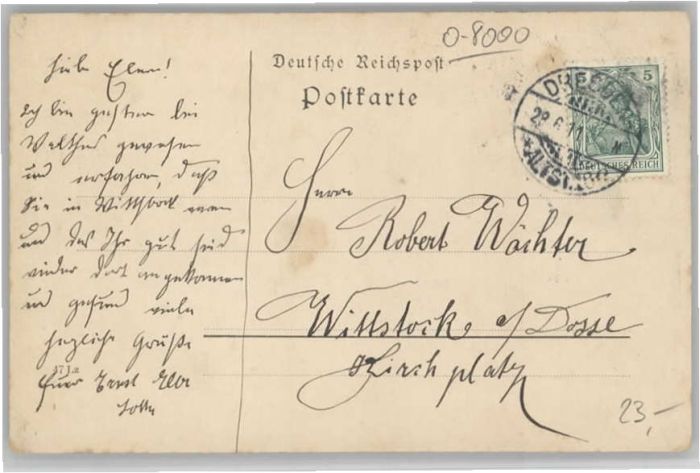 O-8000
Deutsche Reichspost
Postkarte
5
DEUTSCHES REICH
DRESDEN
ALTST.
Liebe Eltern!
Ich bin gestern bei
Walthers gewesen
und erfahren, daß
Sie in Wittstock waren
und das Ihr gut seid
wieder dort angekommen
und gesund viele
herzliche Grüße
Euer Ernst Elsa
Lotte
Herrn
Robert Wächter
Wittstock a/Dosse
Kirchplatz
23,-